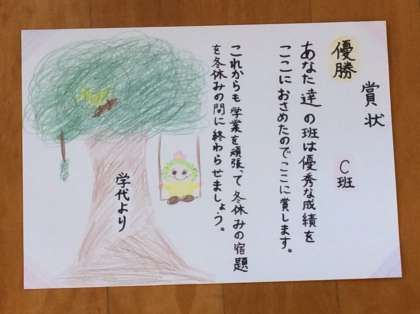 賞状
優勝
C班
あなた達の班は優秀な成績を
ここにおさめたのでここに賞します。
これからも学業を頑張って冬休みの宿題
を冬休みの間に終わらせましょう。
学代より